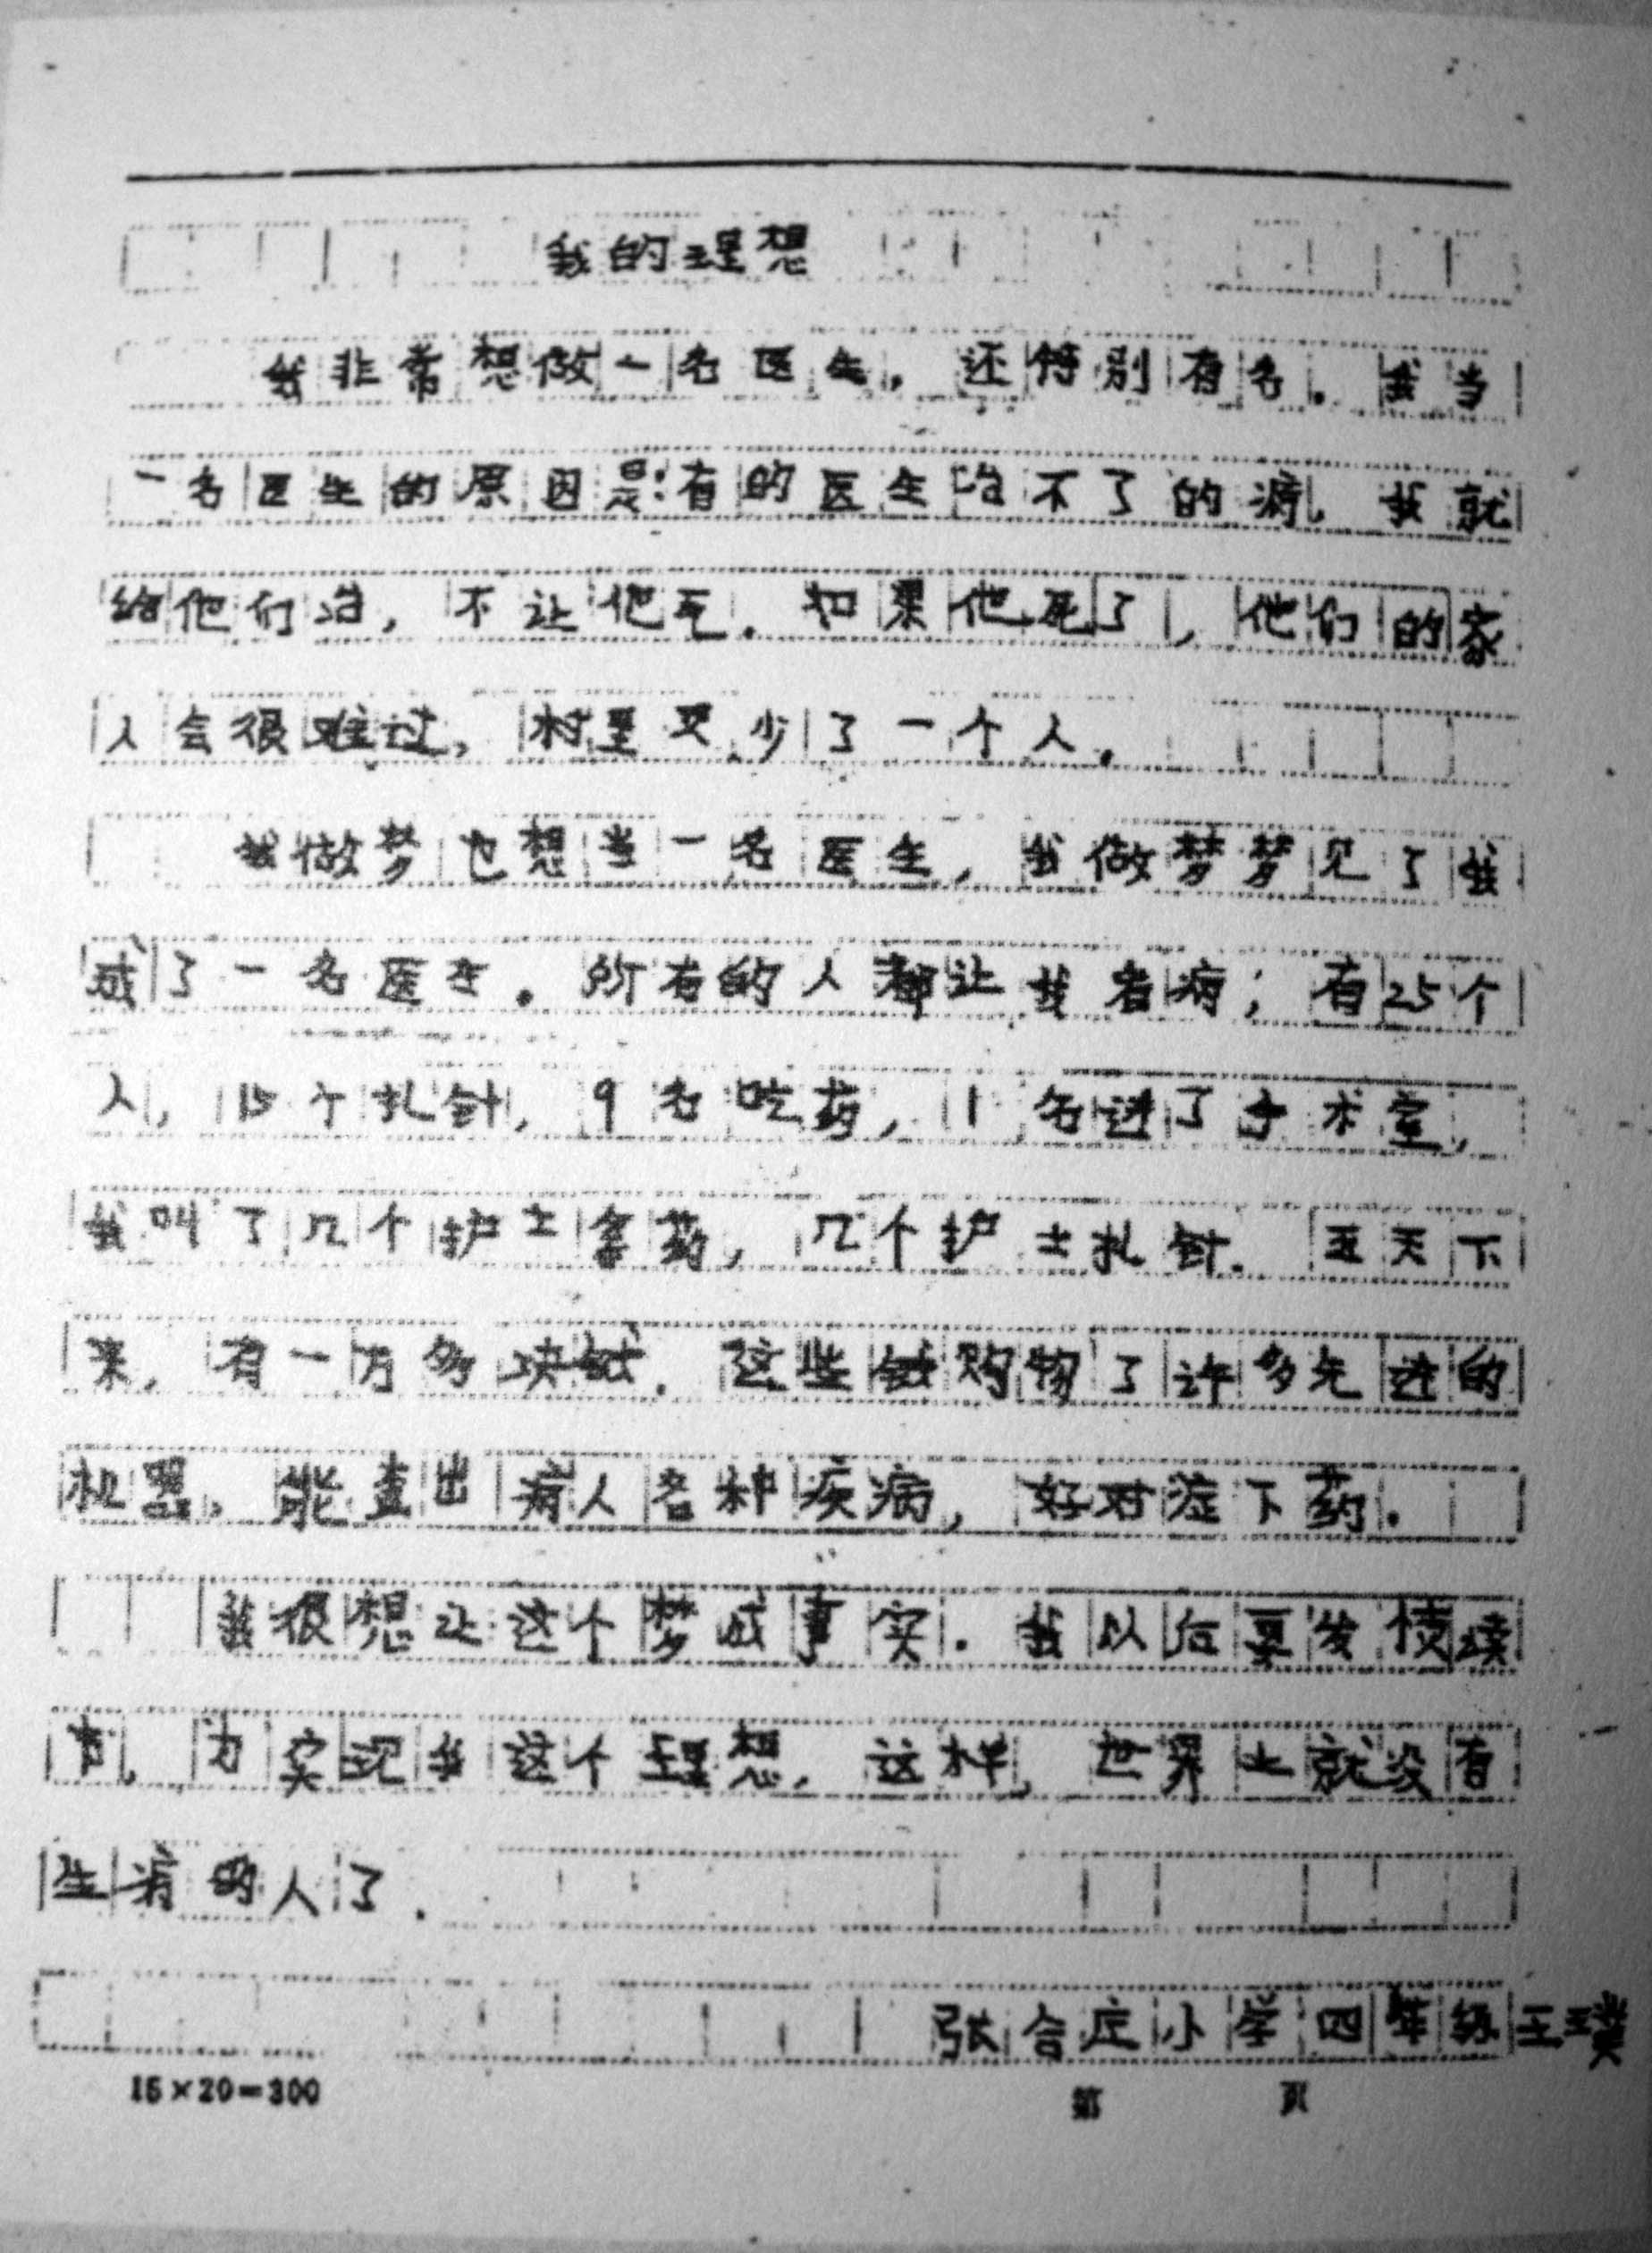 我的理想
我非常想做一名医生，还特别有名。我当
一名医生的原因是：有的医生治不了的病，我就
给他们治，不让他死。如果他死了，他们的家
人会很难过，村里又少了一个人。
我做梦也想当一名医生，我做梦梦见了我
成了一名医生。所有的人都让我看病；有25个
人，15个扎针，9名吃药，1名进了手术室，
我叫了几个护士拿药，几个护士扎针。五天下
来，有一万多块钱。这些钱购物了许多先进的
机器，能查出病人各种疾病，好对症下药。
我很想让这个梦成事实。我以后要发愤读
书，为实现我这个理想，这样，世界上就没有
生病的人了。
张合庄小学四年级王璞
15×20=300 第 页